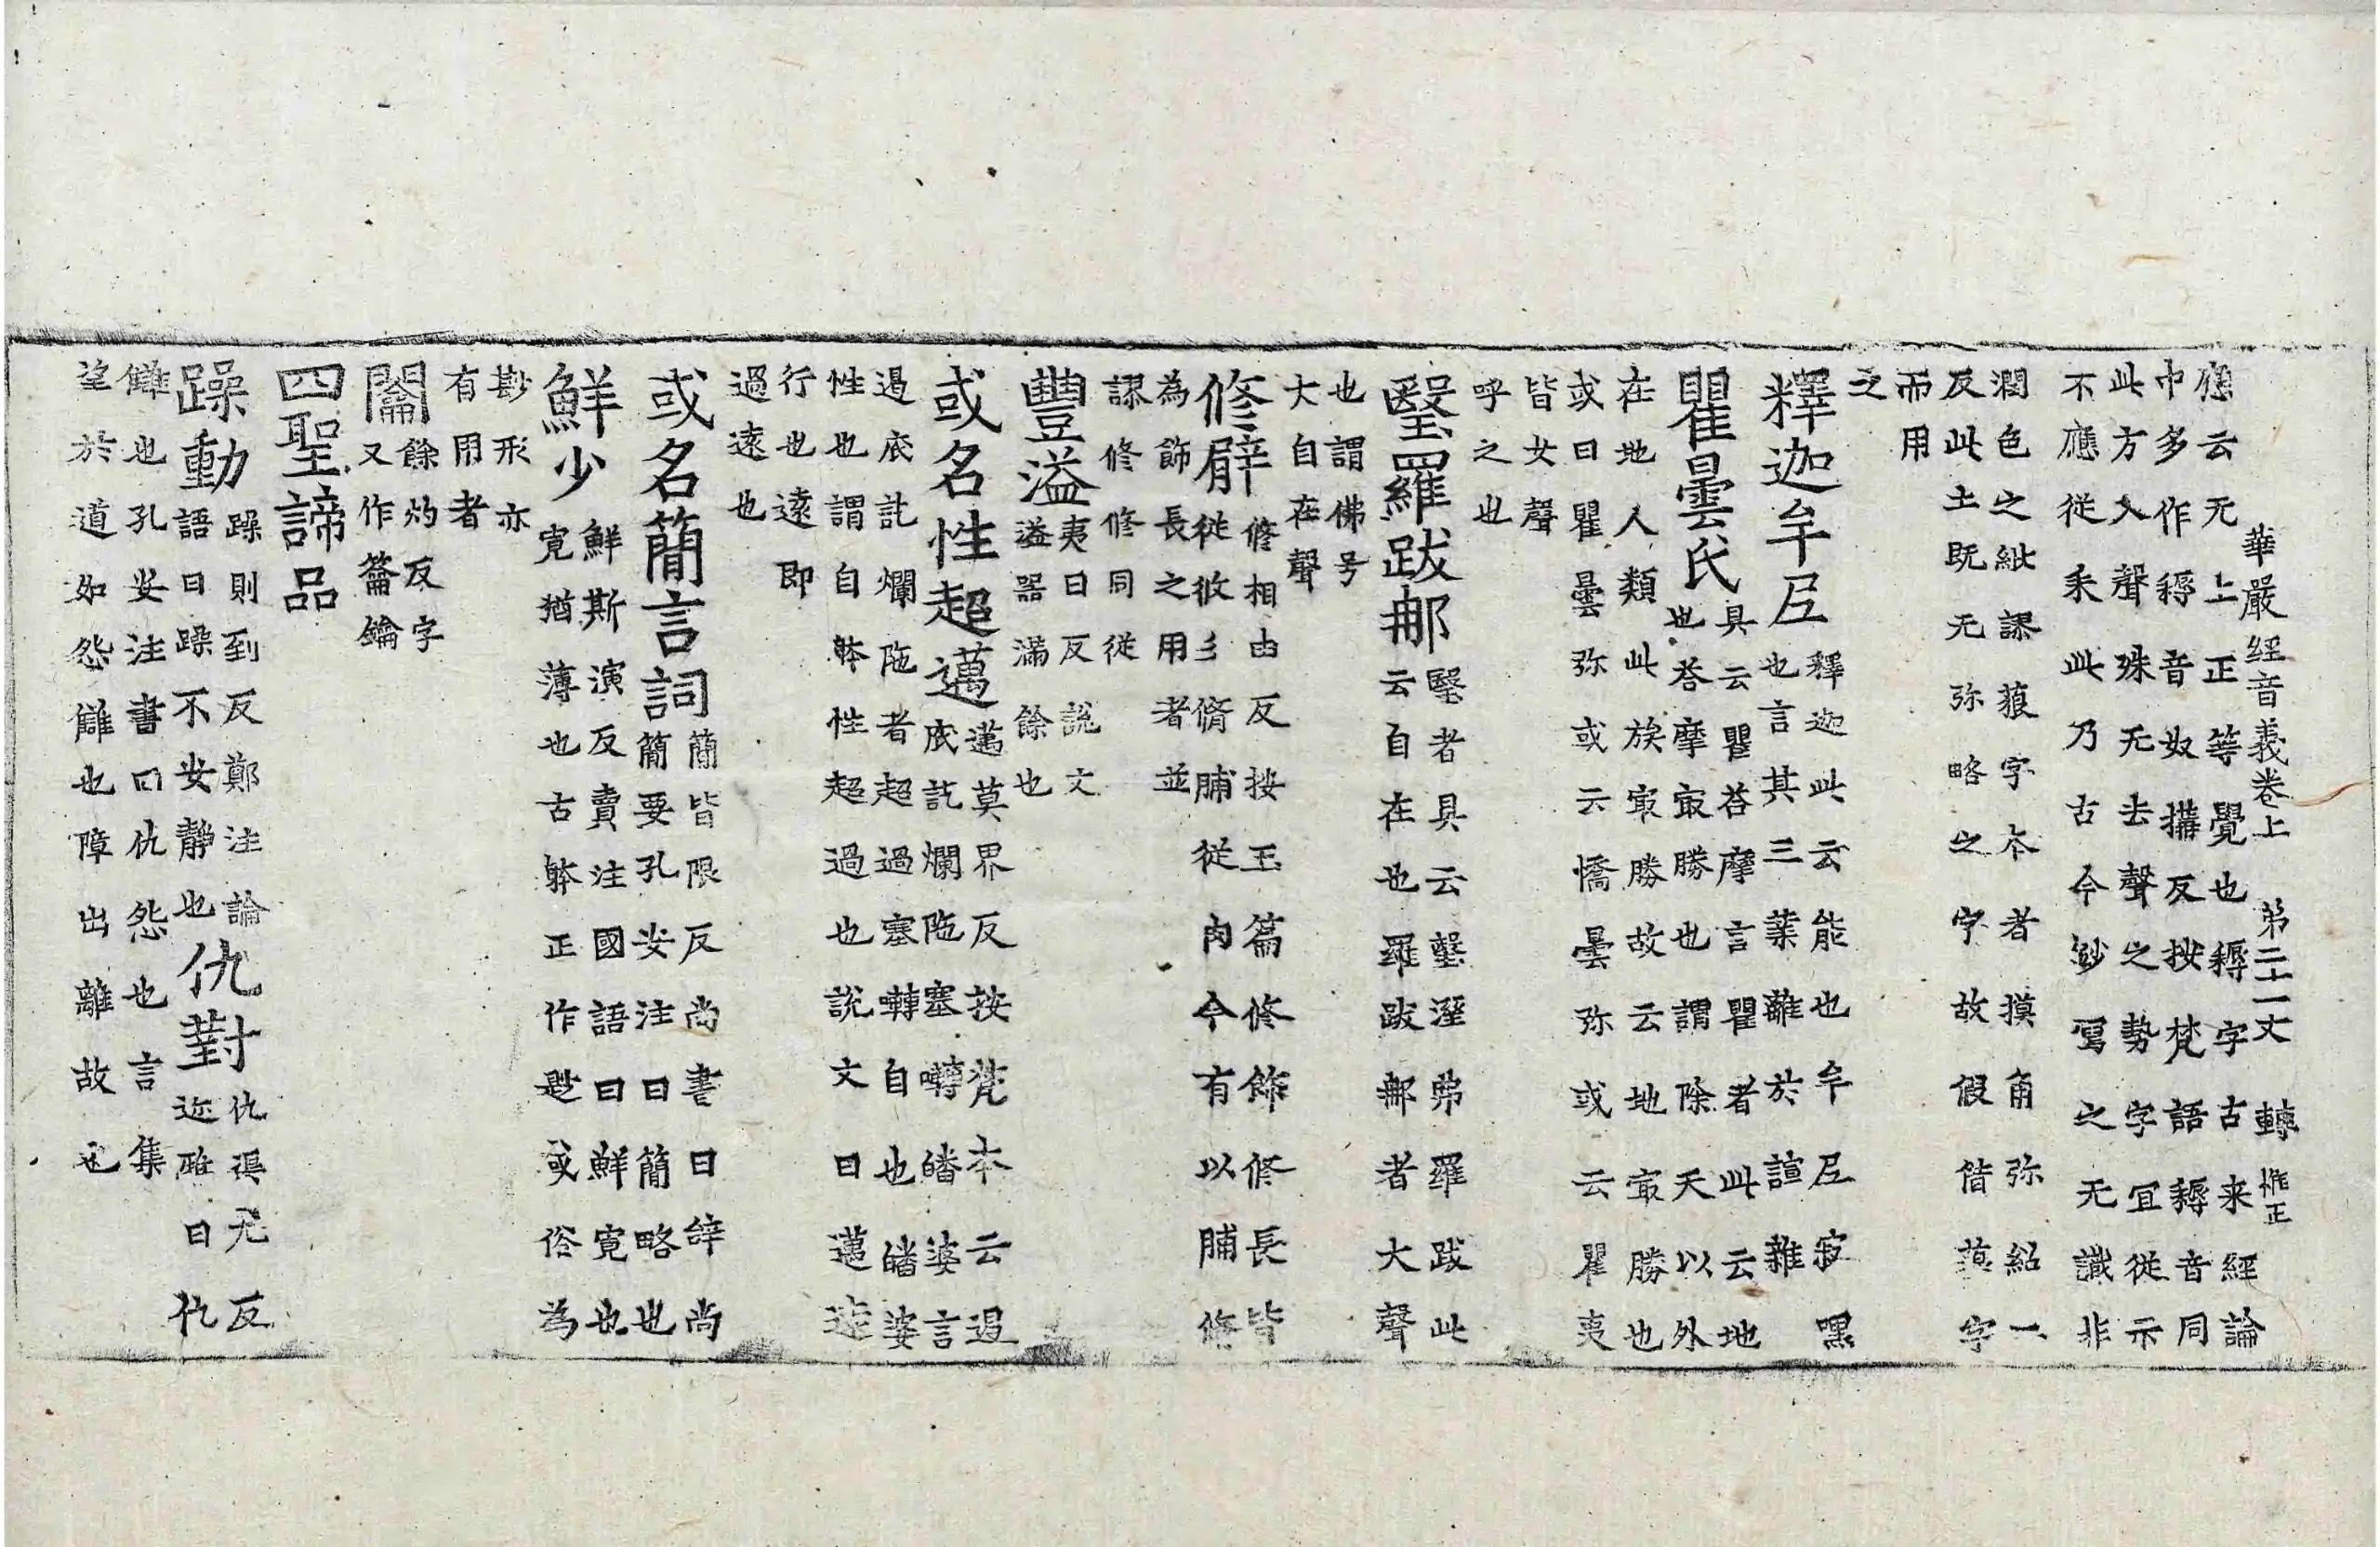 華嚴經音義卷上 第二十一丈 轉 惟正
應云无上正等覺也耨字古来經論
中多作耨音奴搆反按梵語耨音同
此方入聲殊无去聲之勢字宜從示
不應從耒此乃古今鈔寫之无識非
潤色之紕謬 字本者摸 弥紹一
反此土既无弥略之字故假借 字
而用
之
釋迦牟尼 釋迦此云能也牟尼寂嘿
也言其三業離於諠雜
瞿曇氏 具云瞿荅摩言瞿者此云地
也荅摩㝡勝也謂除天以外
在地人類此族㝡勝故云地㝡勝也
或曰瞿曇弥或云憍曇弥或云瞿夷
皆女聲
呼之也
毉羅跋那 毉者具云墼溼弗羅跋此
云自在也羅跋那者大聲
也謂佛号
大自在聲
修臂 修相由反按玉篇修飾修長皆
從攸彡脩脯從肉今有以脯脩
為飾長之用者並
謬修修同從
豐溢 夷日反說文
溢器滿餘也
或名性超邁 邁莫界反按梵本云過
底託爛陁塞囀皤婆言
過底託爛陁者超過塞囀自也皤婆
性也謂自躰性超過也說文曰邁遠
行也遠即
過遠也
或名簡言詞 簡皆限反尚書曰辞尚
簡要孔安注曰簡略也
鮮少 鮮斯演反賣注國語曰鮮寛也
寛猶薄也古躰正作尟或俗為
尠形亦
有用者
闟 餘灼反字
又作籥鑰
四聖諦品
躁動 躁則到反鄭注論
語曰躁不安靜也
仇對 仇渠尤反
迩雅曰仇
讎也孔安注書曰仇怨也言集
望於道如怨讎也障出離故也